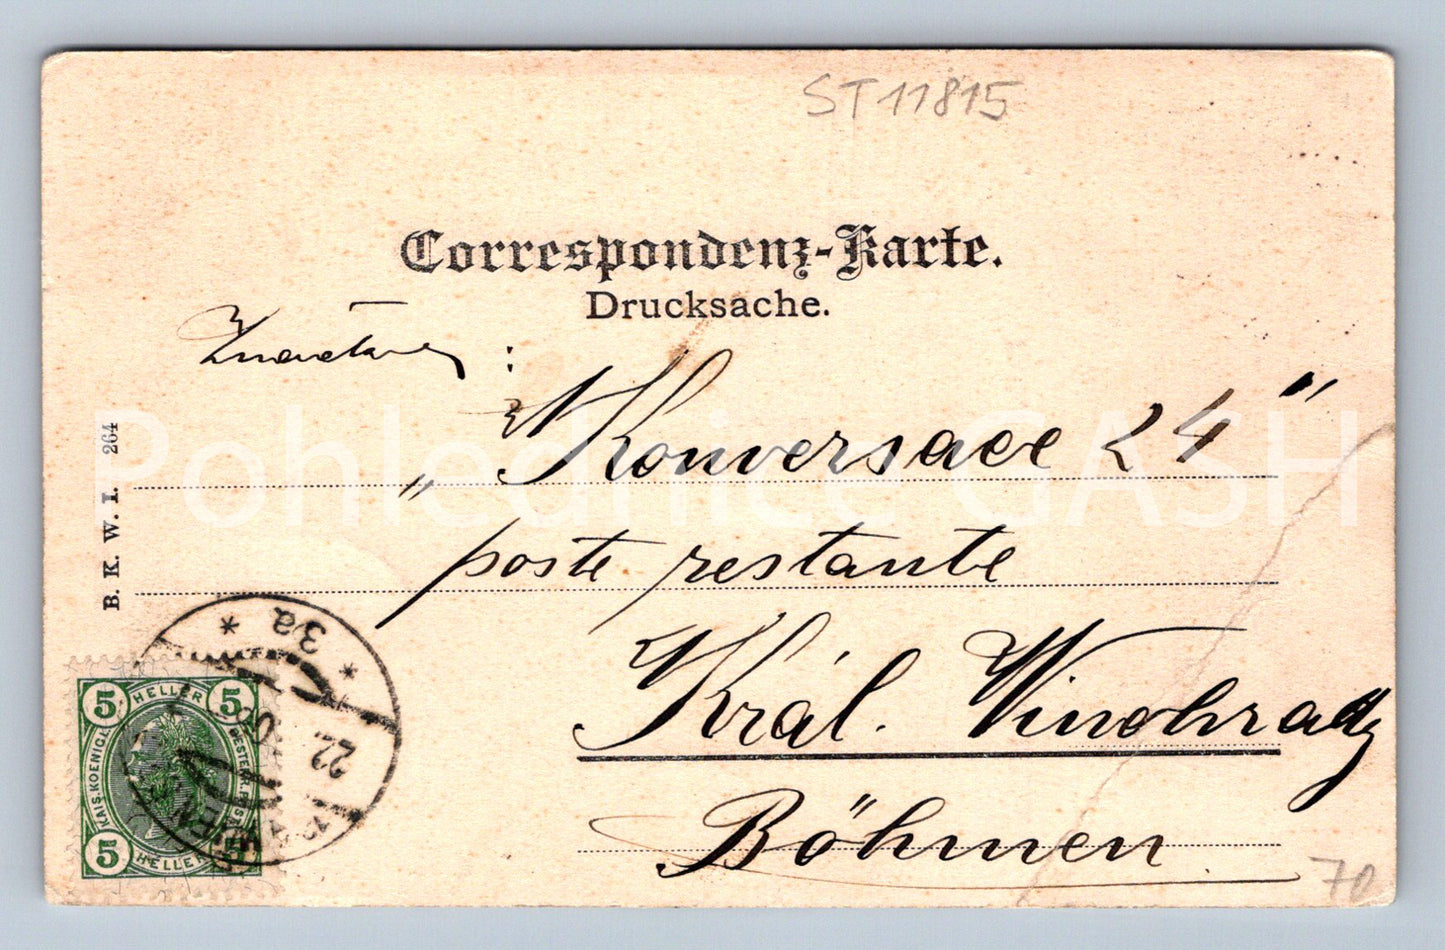 ST 11815
Correspondenz-Karte.
Drucksache.
:
„Konversace 24"
poste restante
Král. Vinohrady
Böhmen
B. K. W. I. 264
3a
22.
WIEN
5 HELLER 5
KAIS.KOENIGL.
5 HELLER 5
70
Pohlednice GASH